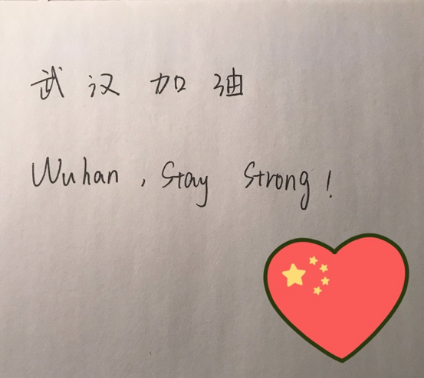 武汉加油
Wuhan, Stay Strong!